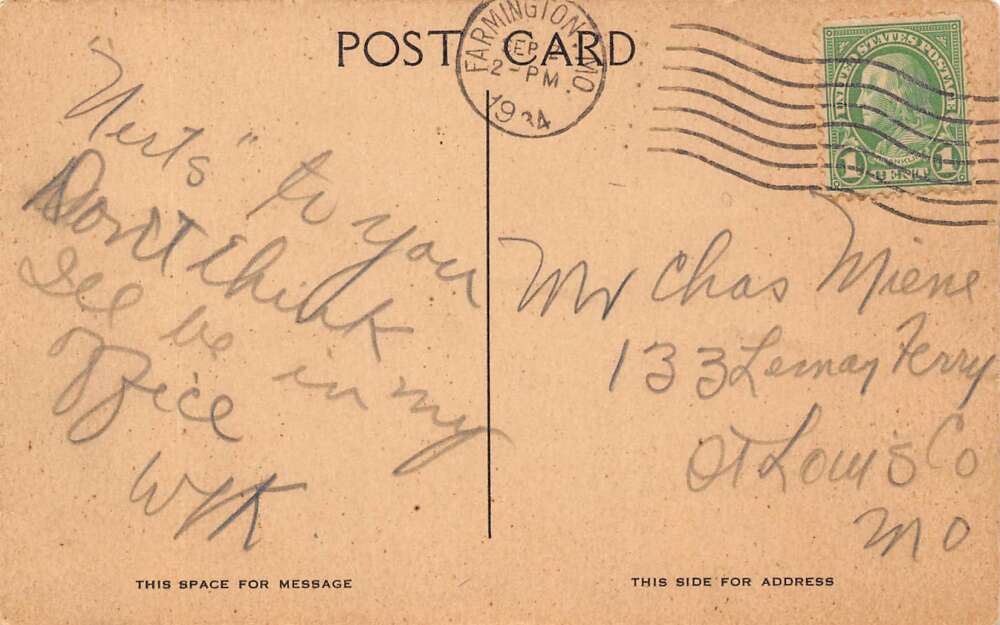 POST CARD
FARMINGTON MO.
SEP
2-PM
1934
UNITED STATES POSTAGE
FRANKLIN
1 1
"Nerts" to you
Don't think
Ill be in my
office
WHK
Mr Chas Miene
133 Lemay Ferry
St Louis Co
Mo
THIS SPACE FOR MESSAGE
THIS SIDE FOR ADDRESS